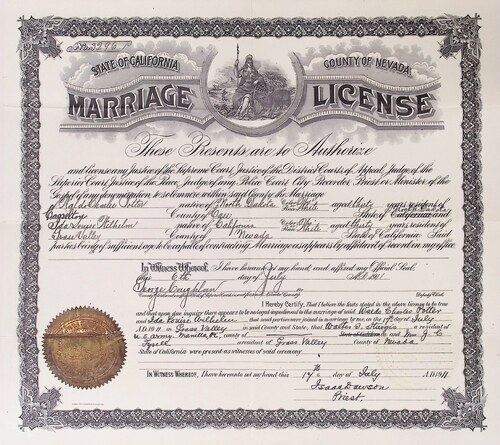 No 3996
STATE OF CALIFORNIA COUNTY OF NEVADA
MARRIAGE LICENSE
These Presents are to Authorize
and license any Justice of the Supreme Court, Justice of the District Courts of Appeal, Judge of the
Superior Court, Justice of the Peace, Judge of any Police Court, City Recorder, Priest or Minister of the
Gospel of any denomination to solemnize within said County the Marriage
of Waldo Charles Potter native of North Dakota Color or Race White aged thirty years resident of
County of State of California and
Ida Louise Wilhelm native of California Color or Race White aged thirty years resident of
Grass Valley County of Nevada State of California Said
parties being of sufficient age to be capable of contracting Marriage as appears by affidavit of record in my office
In Witness Whereof, I have hereunto set my hand and affixed my Official Seal
this 6th day of July A.D. 1911
George Coughlan
Deputy Clerk
I Hereby Certify, That I believe the facts stated in the above license to be true
and that upon due inquiry there appears to be no legal impediment to the marriage of said Waldo Charles Potter
and Ida Louise Wilhelm that said parties were joined in marriage by me, on the 17th day of July
A.D. 1911 in Grass Valley in said County and State; that Walter S. Sturgis a resident of
U.S. Army and Wm J. C.
a resident of Grass Valley County of Nevada
State of California were present as witnesses of said ceremony
In Witness Whereof, I have hereunto set my hand this 17th day of July A.D. 1911
Isaac Dawson
Priest